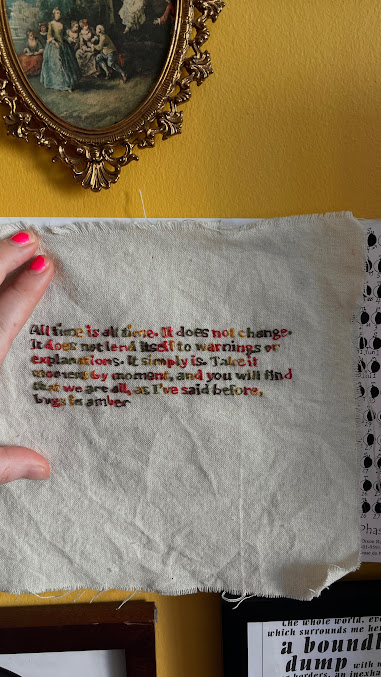 All time is all time. It does not change.
It does not lend itself to warnings or
explanations. It simply is. Take it
moment by moment, and you will find
that we are all, as I've said before,
bugs in amber
Phas
the whole world, eve
which surrounds me her
a boundl
dump with n